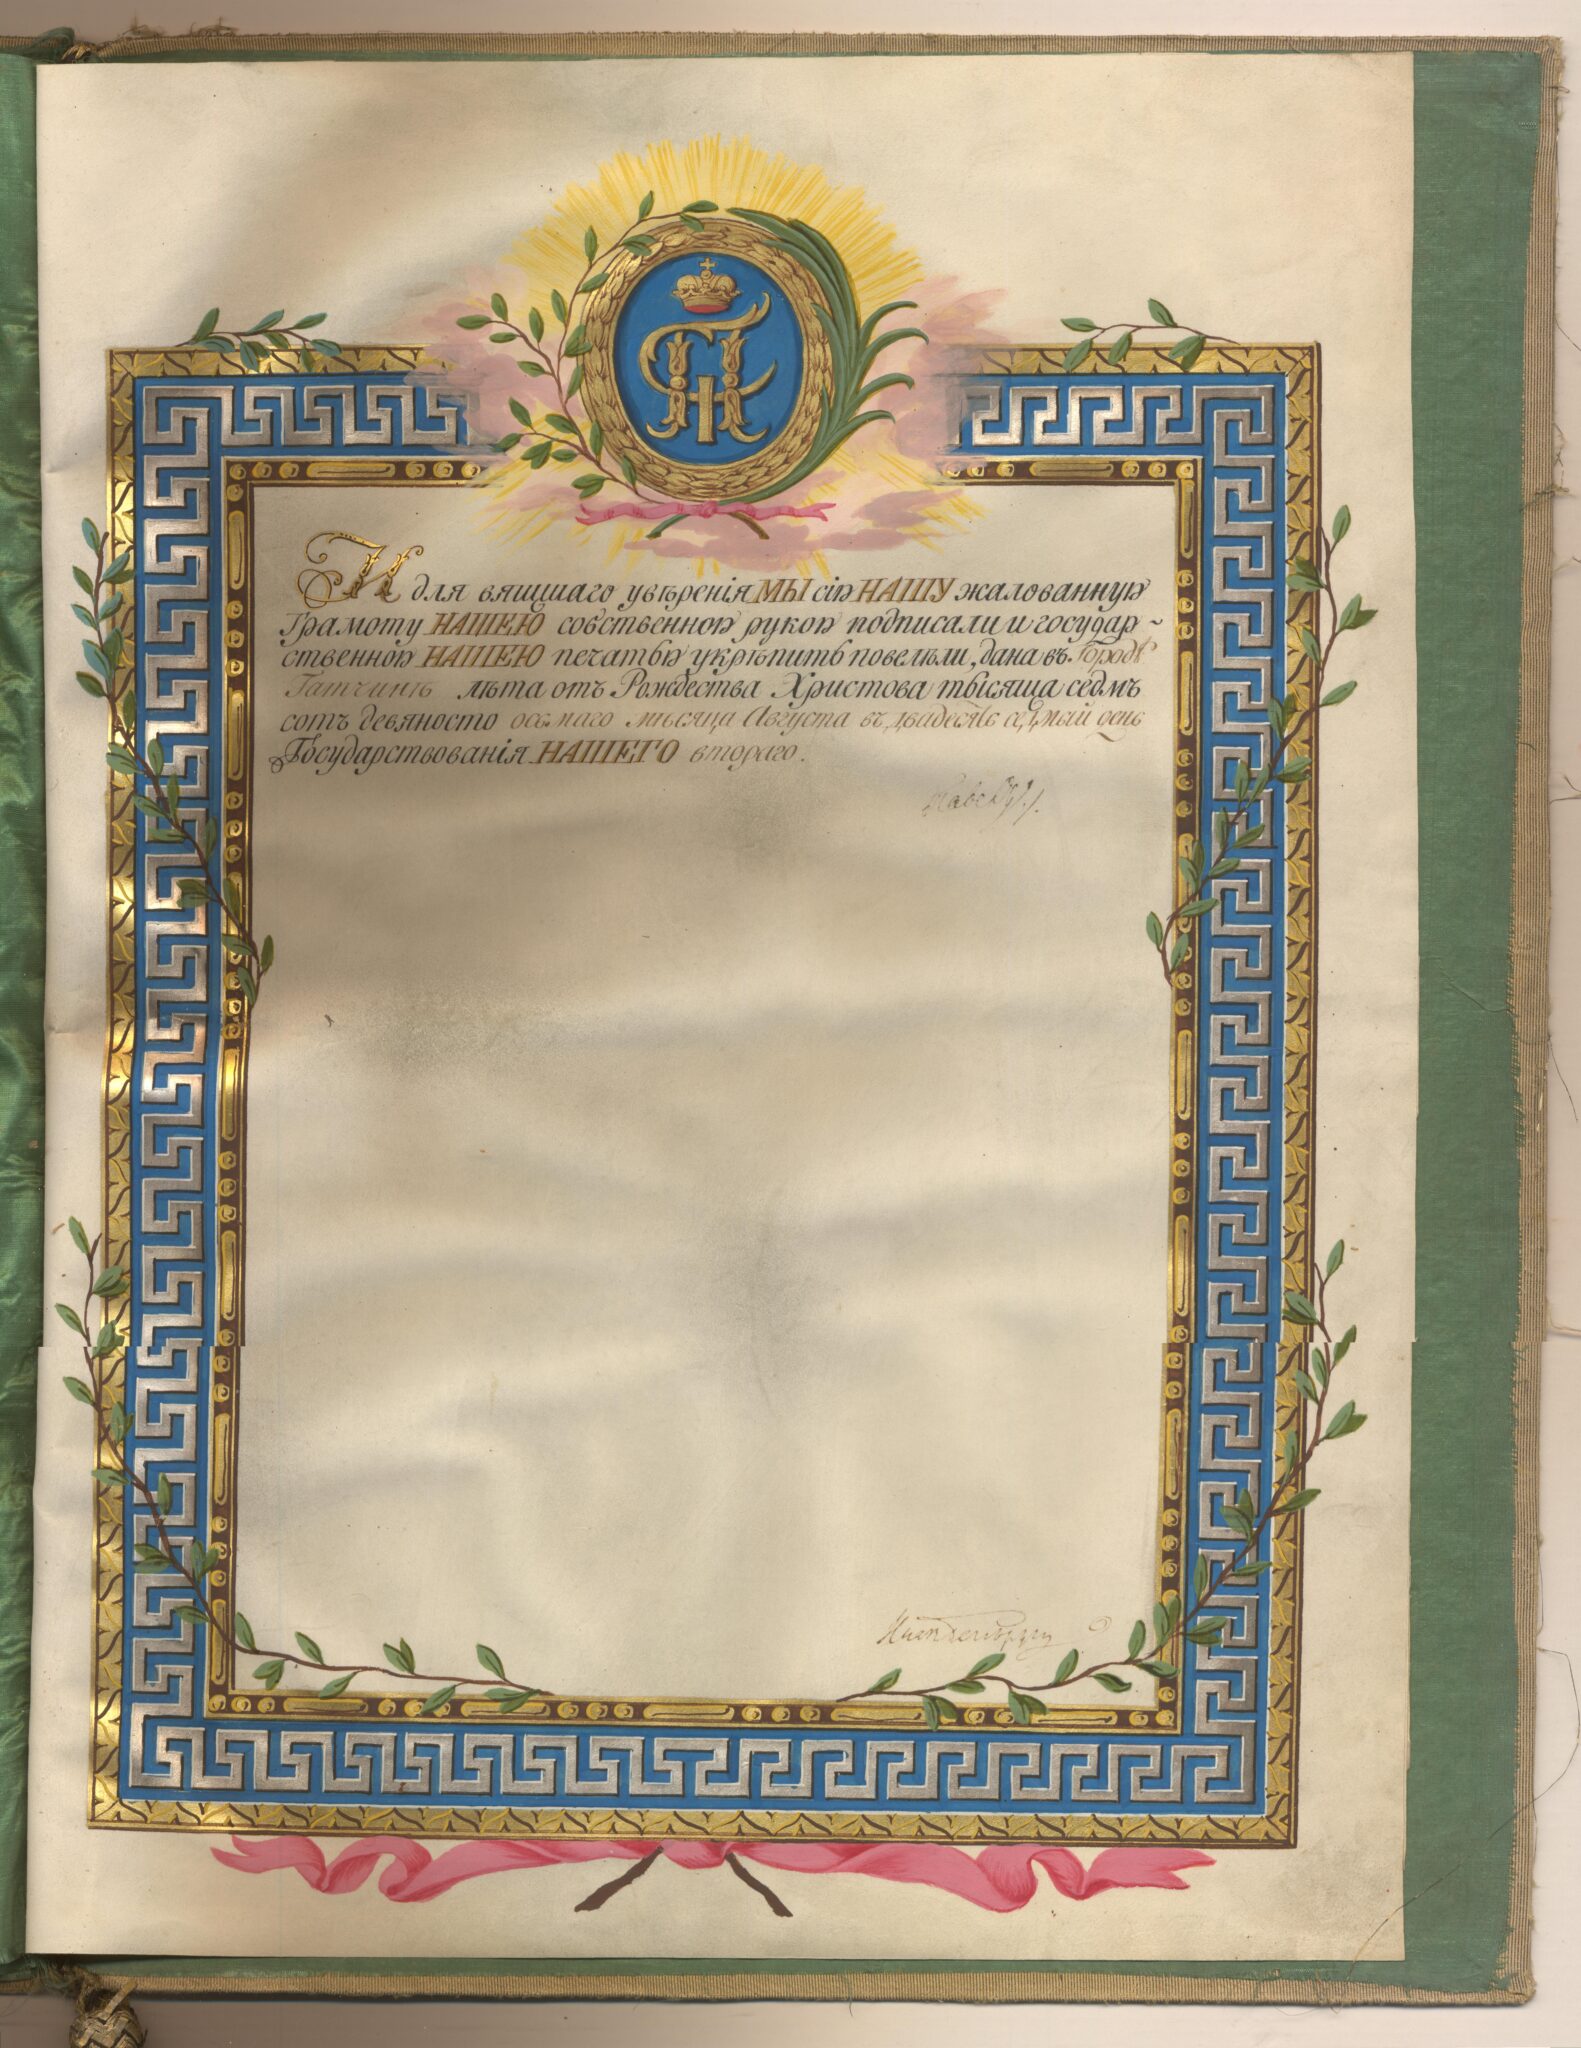 И для вящшаго увѣренія МЫ сію НАШУ жалованную
Грамоту НАШЕЮ собственною рукою подписали и государ-
ственною НАШЕЮ печатью укрѣпить повелѣли, дана въ Городѣ
Гатчинѣ лѣта отъ Рождества Христова тысяща седмъ
сотъ девяносто осьмаго мѣсяца Августа въ двадесять седмый день
Государствованія НАШЕГО втораго.
Павелъ